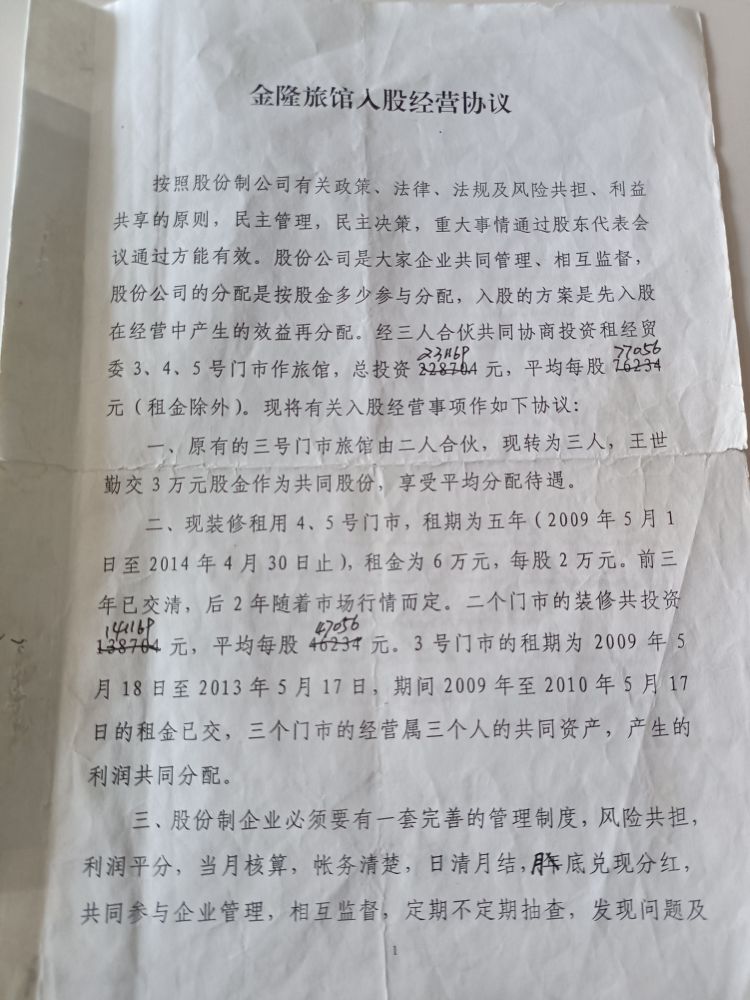 金隆旅馆入股经营协议
按照股份制公司有关政策、法律、法规及风险共担、利益
共享的原则，民主管理，民主决策，重大事情通过股东代表会
议通过方能有效。股份公司是大家企业共同管理、相互监督，
股份公司的分配是按股金多少参与分配，入股的方案是先入股
在经营中产生的效益再分配。经三人合伙共同协商投资租经贸
231169 77056
委3、4、5号门市作旅馆，总投资228704元，平均每股76234
元（租金除外）。现将有关入股经营事项作如下协议：
一、原有的三号门市旅馆由二人合伙，现转为三人，王世
勤交3万元股金作为共同股份，享受平均分配待遇。
二、现装修租用4、5号门市，租期为五年（2009年5月1
日至2014年4月30日止），租金为6万元，每股2万元。前三
年已交清，后2年随着市场行情而定。二个门市的装修共投资
141169 47056
138704元，平均每股46234元。3号门市的租期为2009年5
月18日至2013年5月17日，期间2009年至2010年5月17
日的租金已交，三个门市的经营属三个人的共同资产，产生的
利润共同分配。
三、股份制企业必须要有一套完善的管理制度，风险共担，
利润平分，当月核算，帐务清楚，日清月结，底兑现分红，
共同参与企业管理，相互监督，定期不定期抽查，发现问题及
1